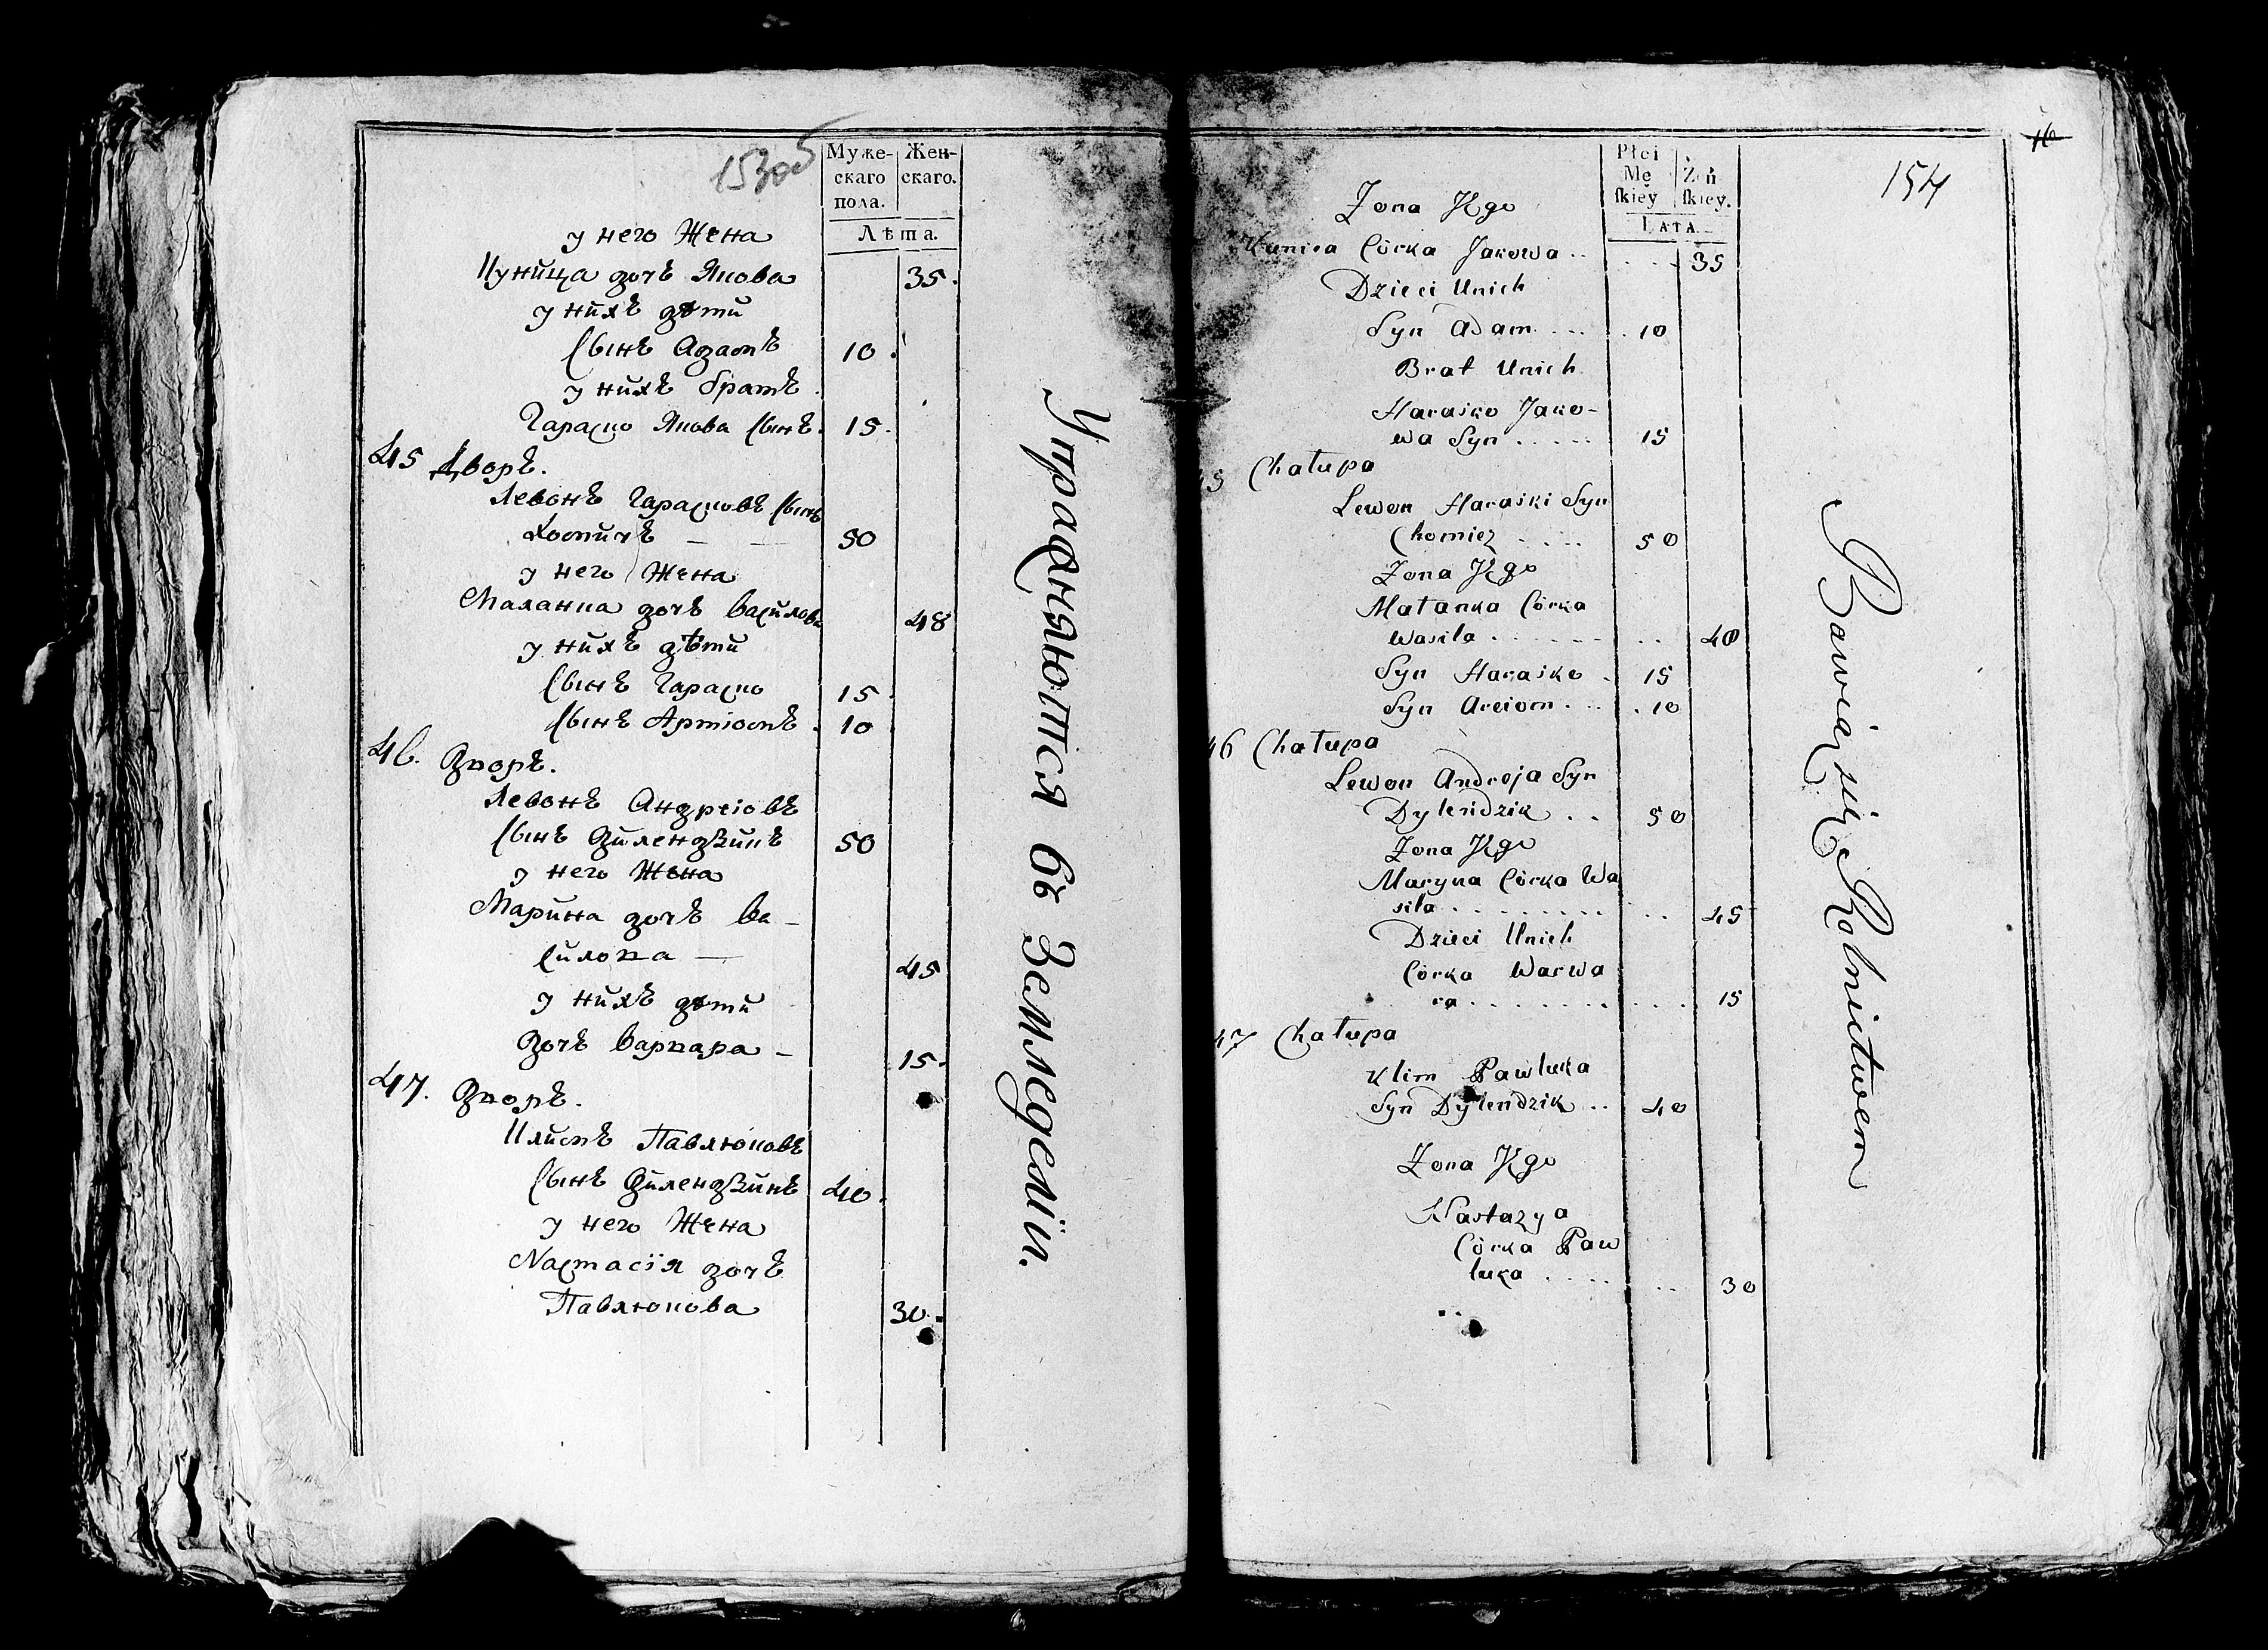 153об
Муже-
скаго
пола.
Жен-
скаго.
Лѣта.
у него Жена
Куница дочъ Якова 35.
у нихъ дѣти
Сынъ Адамъ 10.
у нихъ братъ
Гараско Якова Сынъ. 15.
45 Дворъ.
Левонъ Гарасковъ Сынъ
Хомичъ — — 50
у него Жена
Маланка дочъ Василова 48
у нихъ дѣти
Сынъ Гараско 15.
Сынъ Артіомъ. 10
46. Дворъ.
Левонъ Андреіовъ
Сынъ Дилендзикъ 50
у него Жена
Марина дочъ Ва-
силова — 45
у нихъ дѣти
Дочъ Варвара - 15.
47. Дворъ.
Климъ Павлюковъ
Сынъ Дилендзикъ 40.
у него Жена
Настасія дочъ
Павлюкова 30.
Упражняются въ Земледеліи.
16
154
Płci
Mę
skiey
Żeń
skiey.
LATA.
Żona Jego
Kunica Córka Jakowa .. . . . 35
Dzieci Unich
Syn Adam . . . . 10
Brat Unich
Harasko Jako-
wa Syn . . . . . 15
45 Chałupa
Lewon Haraski Syn
Chomicz . . . . 50
Żona Jego
Małanka Córka
Wasila . . . . . . . . 48
Syn Harasko . 15
Syn Arciom . . . . 10
46 Chałupa
Lewon Andreja Syn
Dylendzik . . 50
Żona Jego
Maryna Córka Wa
sila . . . . . . . . . . 45
Dzieci Unich
Córka Warwa
ra . . . . . . . . . . 15
47 Chałupa
Klim Pawluka
Syn Dylendzik .. 40
Żona Jego
Nastazya
Córka Paw
luka . . . . . . 30
Bawią się Rolnictwem